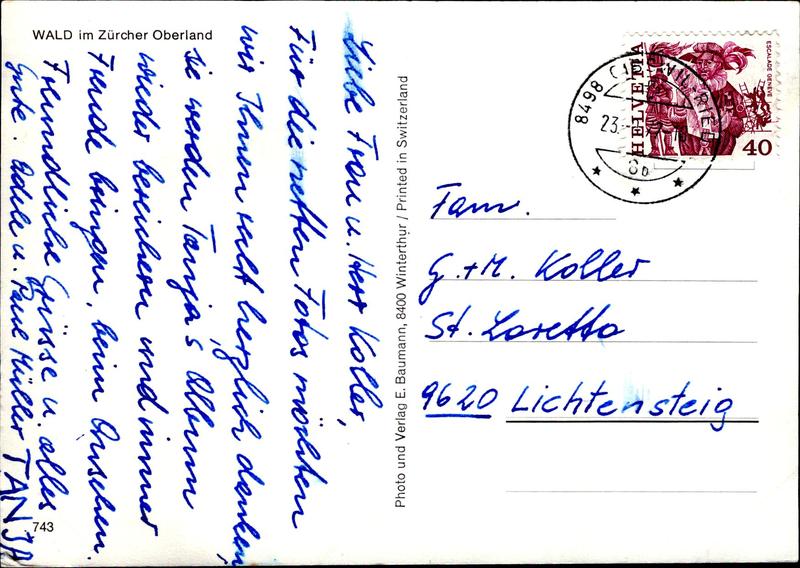 WALD im Zürcher Oberland
Liebe Frau u. Herr Koller,
Für die netten Fotos möchten
wir Ihnen recht herzlich danken,
sie werden Tanja's Album
wieder bereichern und immer
Freude bringen, beim Ansehen.
Freundliche Grüsse u. alles
Gute. Edele u. Paul Müller TANJA
743
Photo und Verlag E. Baumann, 8400 Winterthur / Printed in Switzerland
HELVETIA
ESCALADE GENÈVE
40
8498
23.
Fam.
G. + M. Koller
St. Loretto
9620 Lichtensteig